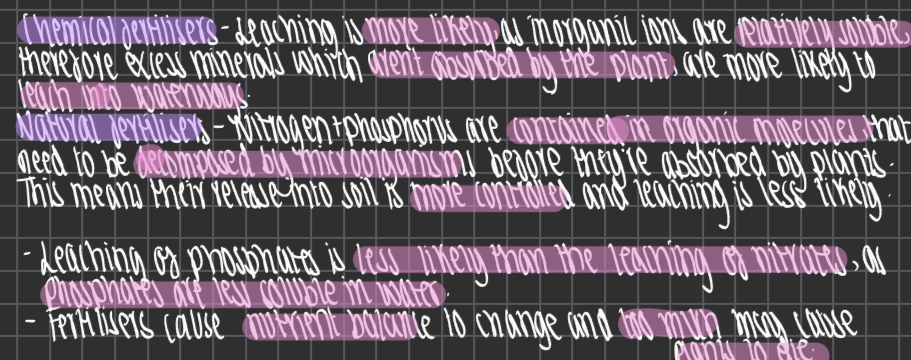 Chemical fertilisers - Leaching is more likely as inorganic ions are relatively soluble,
therefore excess minerals which arent absorbed by the plant, are more likely to
leach into waterways.
Natural fertilisers - Nitrogen + phosphorus are contained in organic molecules that
need to be decomposed by microorganisms before they're absorbed by plants.
This means their release into soil is more controlled and leaching is less likely.
- Leaching of phosphates is less likely than the leaching of nitrates, as
phosphates are less soluble in water.
- Fertilisers cause nutrient balance to change and too much may cause
plants to die.